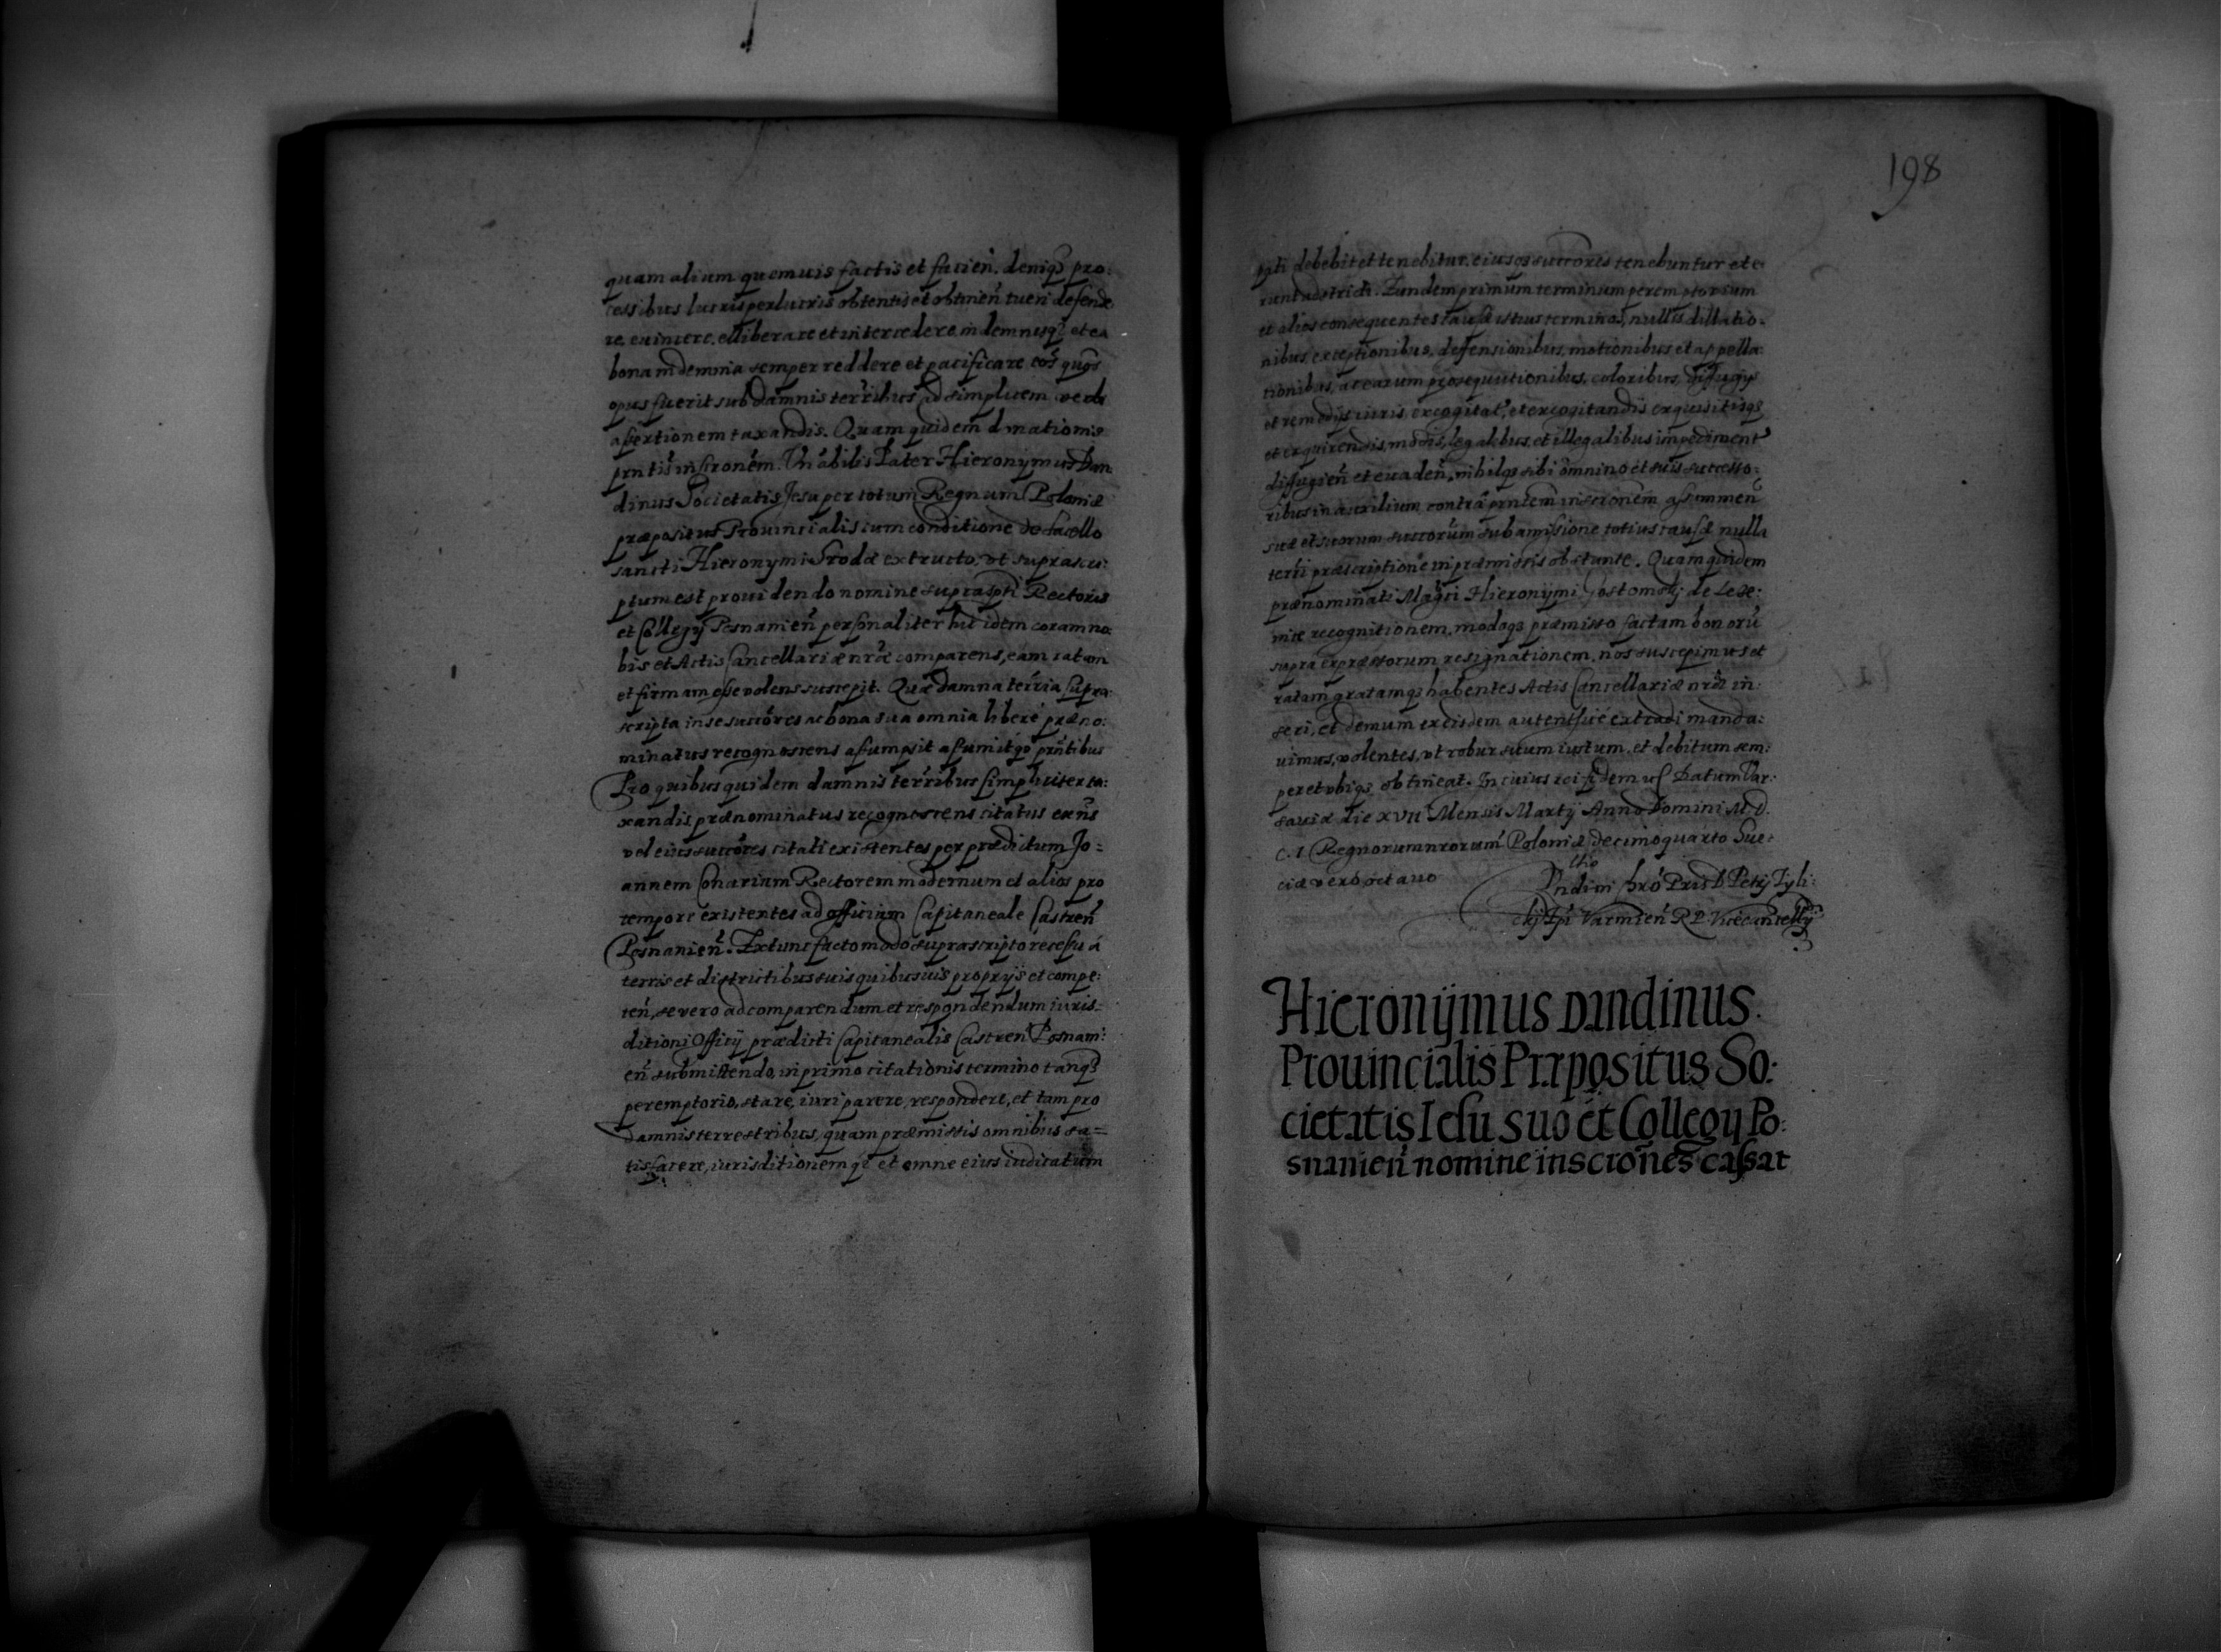 quam alium quemuis factis et facien̄. deniqȝ pro:
cessibus lucris perlucris obtentis et obtinen̄ tueri defende
re, euincere, elliberare et intercedere, indemnusqȝ et ea
bona indemnia semper reddere et pacificare toȓ quos
opus fuerit sub damnis terribus ad simplicem verbi
assertionem taxandis. Quam quidem donationis
pn̄tis inscronem. Vn̄abilis Pater Hieronymus Dan
dinus Societatis Jesu per totum Regnum Poloniæ
præpositus Prouincialis cum conditione de sacello
sancti Hieronymi Srodæ extructo, vt suprascri:
ptum est prouidendo nomine suprasc̄pti Rectoris
et Collegij Posnamien̄ personaliter hic idem coram no:
bis et Actis Cancellariæ nr̄æ comparens, eam ratam
et firmam esse volens suscepit. Quæ damna terria supra:
scripta in se succ̄ores ac bona sua omnia liberè præno:
minatus recognoscens assumpsit assumitqȝ pn̄tibus
Pro quibus quidem damnis terribus simpliciter ta:
xandis prænominatus recognoscens citatus exn̄s
vel eius succ̄ores citati existentes per prædictum Jo=
annem Conarium Rectorem modernum et alios pro
tempore existentes ad officium Capitaneale Castren̄
Posnanien̄. Extunc facto modo suprascripto recessu á
terris et districtibus suis quibusuis proprijs et compe:
ten̄, se vero ad comparendum et respondendum iuris=
ditioni Officij prædicti Capitanealis Castren̄ Posnani:
en̄ submittendo, in primo citationis termino tanqȝ
peremptorio, stare, iuri parere, respondere, et tam pro
damnis terrestribus, quam præmissis omnibus sa=
tisfacere, iurisditionemqȝ et omne eius iudicatum
198
pati debebit et tenebitur, eiusqȝ succ̄ores tenebuntur et e:
runt adstricti. Eundem primum terminum peremptorium
et alios consequentes causæ istius terminos, nullis dillatio:
nibus, exceptionibus, deffensionibus, motionibus et appella:
tionibus, ac earum prosequutionibus, coloribus, diffugijs
et remedijs iuris, excogitat̓, et excogitandis exquisitisqȝ
et exquirendis, modis, legalibus, et illegalibus impediment̓
diffugien̄ et euaden̄, nihilqȝ sibi omnino et suis successo:
ribus in auxilium contra pn̄tem inscronem assummen̄
suæ et suorum succ̄orum sub amissione totius causæ nulla
terr̄i præscriptione in præmissis obstante. Quam quidem
prænominati Magci Hieronymi Gostomskij de Leze:
nice recognitionem, modoqȝ præmisso factam bonorū
supra expressorum resignationem, nos suscepimus et
ratam gratamqȝ habentes Actis Cancellariæ nr̄æ in:
seri, et demum ex eisdem autenticè extradi manda:
uimus, volentes, vt robur suum iustum, et debitum sem:
per et vbiqȝ obtineat. In cuius rei fidem &c. Datum Var:
sauiæ die XVII Mensis Martij Anno Domini M.D.
C.I Regnorum nrorum Poloniæ decimoquarto Sue:
ciæ verò octauo
Petri Tyli:
ckij Ep̄i Varmien̄ R.P. Vicecancellarij
Hieronijmus Dandinus
Prouincialis Præpositus So:
cietatis Iesu suo et Collegij Po:
snanien̄ nomine inscrōnes cassat